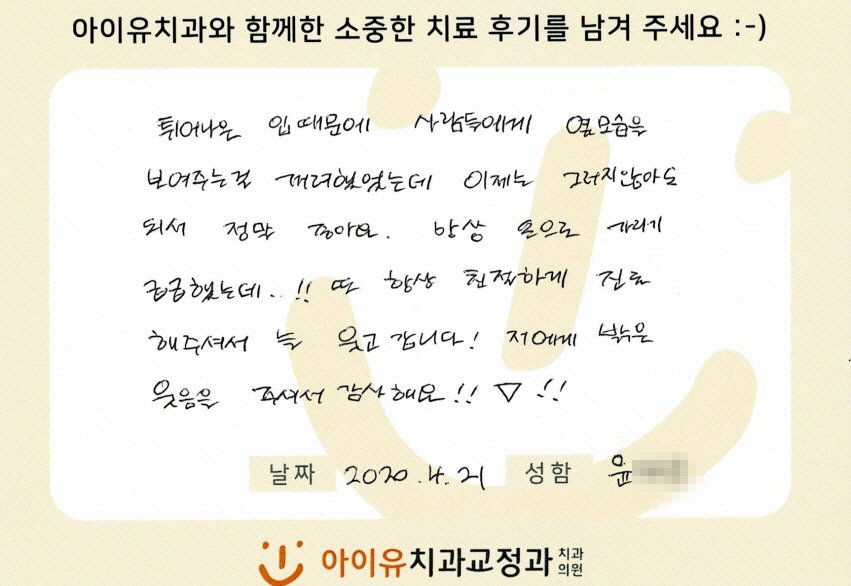 아이유치과와 함께한 소중한 치료 후기를 남겨 주세요 :-)
튀어나온 입 때문에 사람들에게 옆모습을
보여주는걸 꺼려했었는데 이제는 그러지않아도
되서 정말 좋아요. 항상 손으로 가리기
급급했는데..!! 또 항상 친절하게 진료
해주셔서 늘 웃고 갑니다! 저에게 밝은
웃음을 주셔서 감사해요!! ▽ !!
날짜 2020.4.21 성함 윤
아이유치과교정과 치과의원